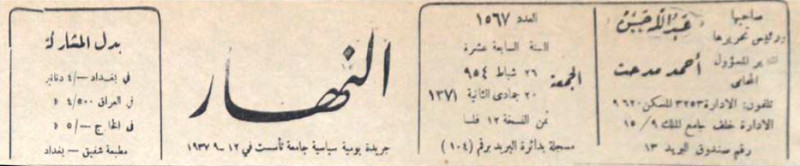 صاحبها
ورئيس تحريرها
عبد الله حسن
المدير المسؤول
المحامي
أحمد مدحت
تلفون: الادارة ٣٢٥٣ المسكن ٩٦٢٠
الادارة خلف جامع الملك ٩/ ١٥
رقم صندوق البريد ١٣
العدد ١٥٦٧
السنة السابعة عشرة
الجمعة
٢٦ شباط ٩٥٤
٢٠ جمادى الثانية ١٣٧١
ثمن النسخة ١٢ فلسا
مسجلة بدائرة البريد برقم (١٠٤)
النهار
جريدة يومية سياسية جامعة تأسست في ١٢-٩-١٩٣٧
بدل المشاركة
في بغداد -/٤ دنانير
في العراق ٤/٥٠٠ »
في الخارج -/٥ »
مطبعة شفيق - بغداد